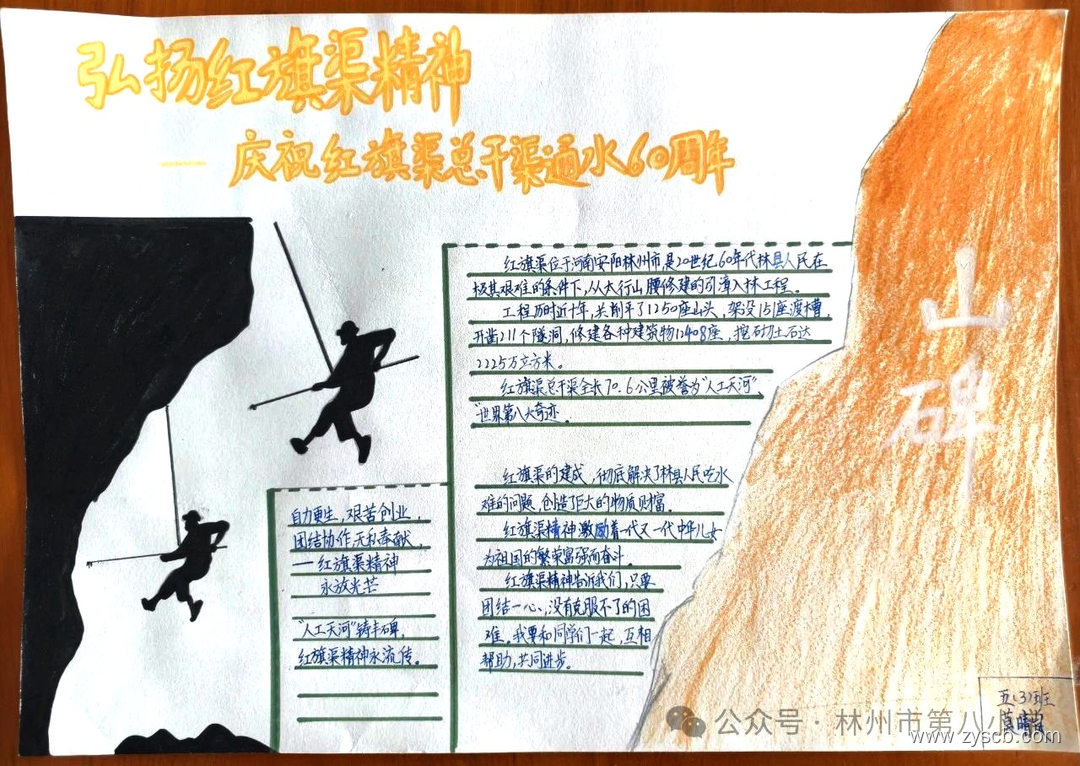 弘扬红旗渠精神
——庆祝红旗渠总干渠通水60周年
红旗渠位于河南安阳林州市是20世纪60年代林县人民在
极其艰难的条件下,从太行山腰修建的引漳入林工程。
工程历时近十年,共削平了1250座山头,架设151座渡槽,
开凿211个隧洞,修建各种建筑物12408座,挖砌土石达
2225万立方米。
红旗渠总干渠全长70.6公里被誉为"人工天河"、
"世界第八大奇迹。
红旗渠的建成,彻底解决了林县人民吃水
难的问题,创造了巨大的物质财富。
红旗渠精神激励着一代又一代中华儿女
为祖国的繁荣富强而奋斗。
红旗渠精神告诉我们,只要
团结一心,没有克服不了的困
难。我要和同学们一起,互相
帮助,共同进步。
自力更生,艰苦创业,
团结协作,无私奉献,
—红旗渠精神
永放光芒
"人工天河"铸丰碑,
红旗渠精神永流传。
山
碑
五(3)班
公众号·林州市第八小
www.zyscb.com